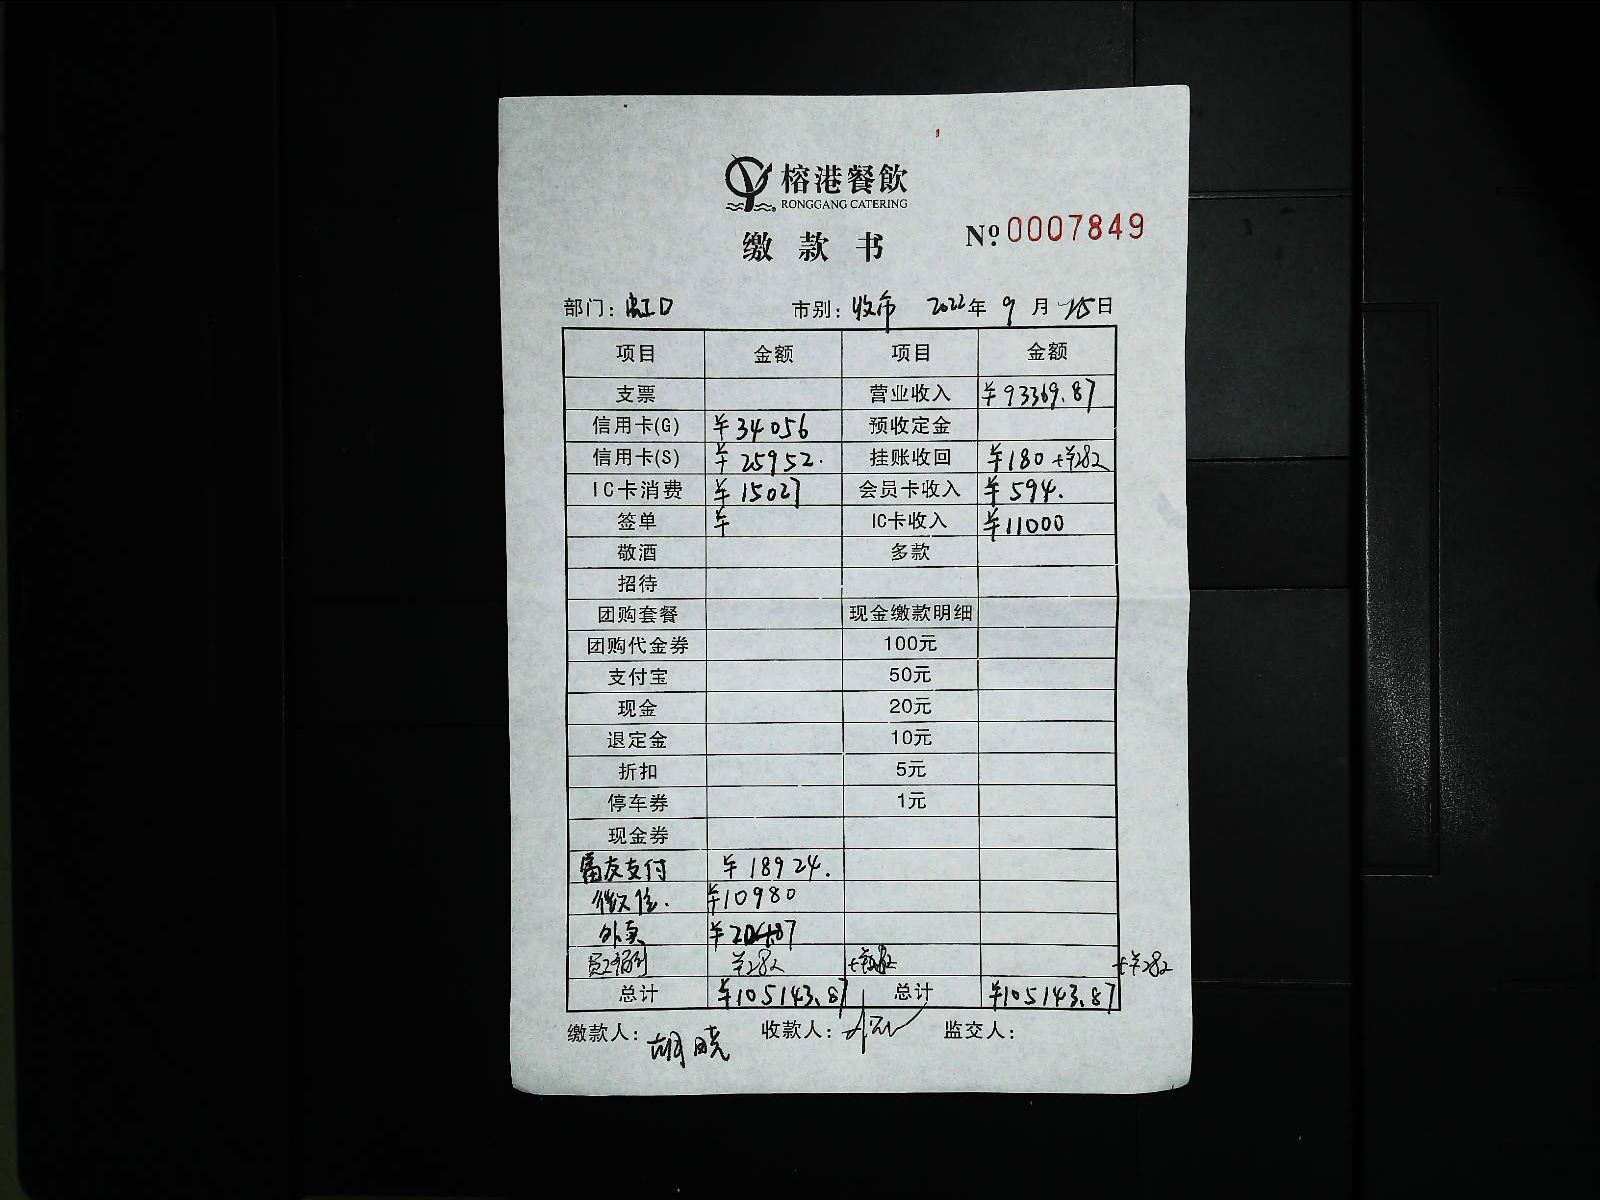 榕港餐飲
RONGGANG CATERING
缴款书 Nº:0007849
部门: 虹口 市别: 收市 2022年 9月 15日
项目 金额 项目 金额
支票 营业收入 ¥93369.87
信用卡(G) ¥34056 预收定金
信用卡(S) ¥25952. 挂账收回 ¥180 +¥282
IC卡消费 ¥15027 会员卡收入 ¥594.
签单 ¥ IC卡收入 ¥11000
敬酒 多款
招待
团购套餐 现金缴款明细
团购代金券 100元
支付宝 50元
现金 20元
退定金 10元
折扣 5元
停车券 1元
现金券
富友支付 ¥18924.
微信. ¥10980
外卖 ¥204.87
员工福利 ¥282 +¥282 +¥282
总计 ¥105143.87 总计 ¥105143.87
缴款人: 胡晓 收款人: 监交人: